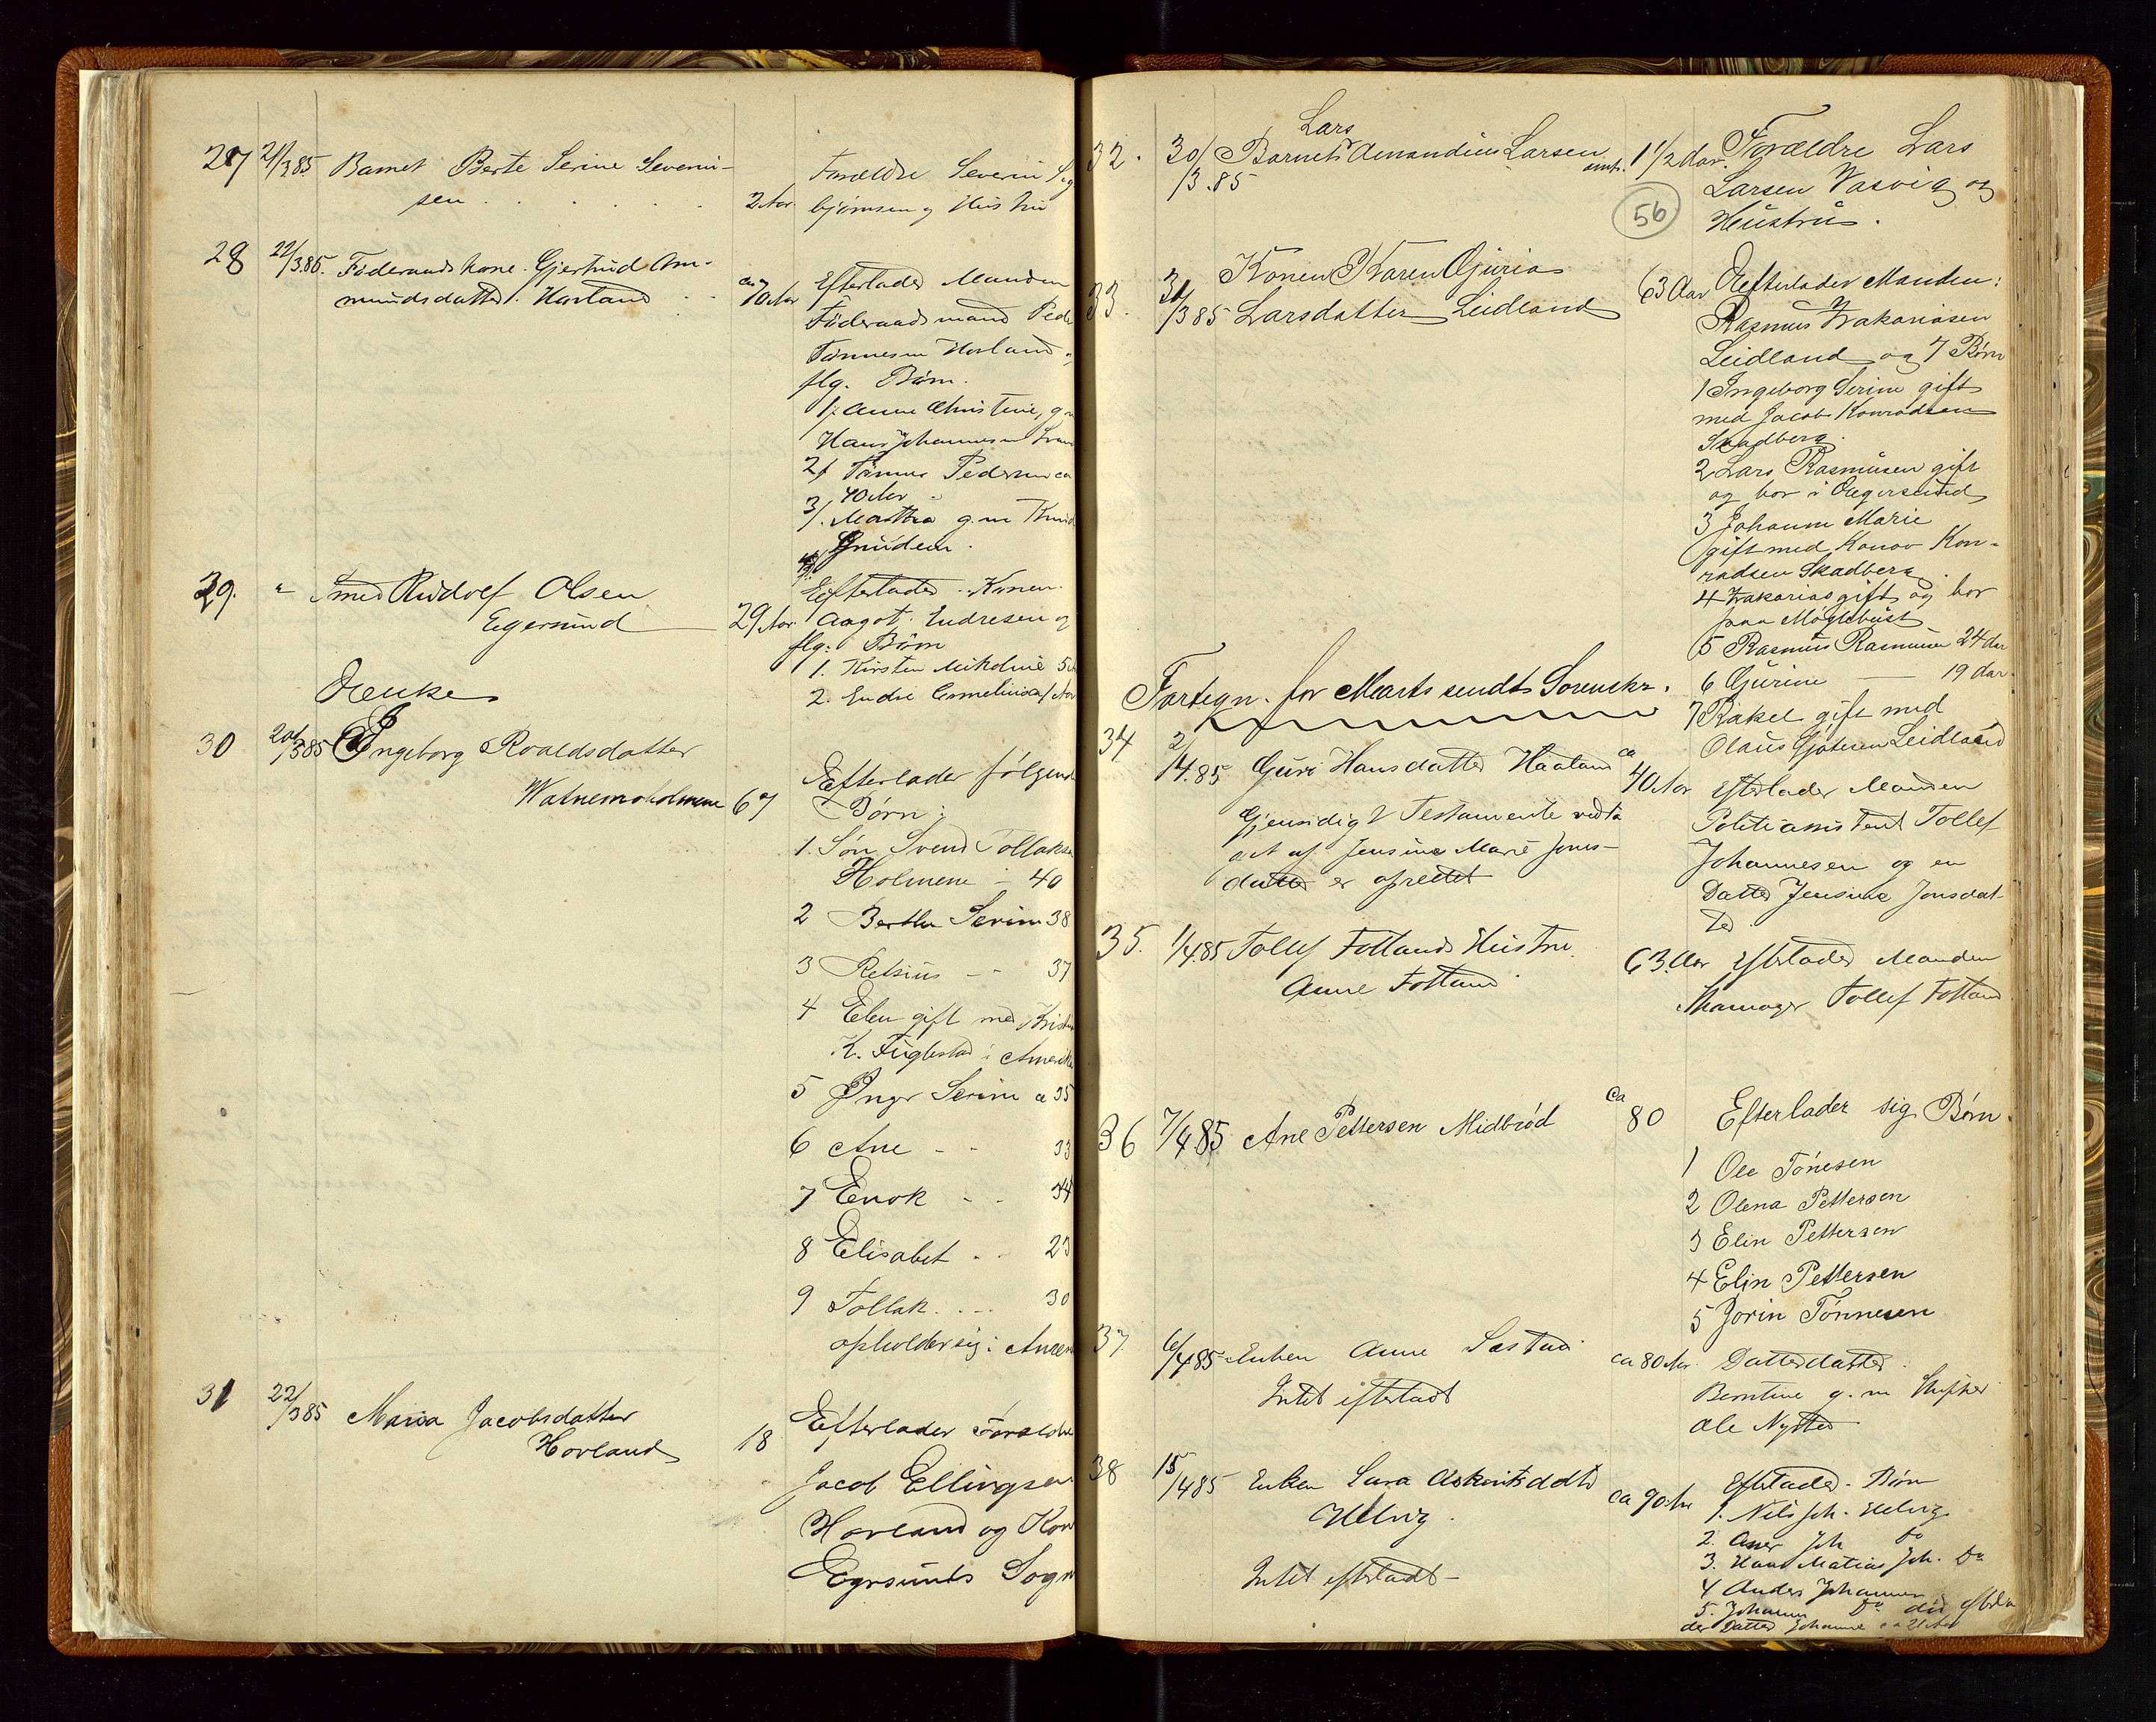 27 21/3 85 Barnet Berte Serine Severin-
sen . . . . . 2 Aar.
Forældre Severin Sig
bjørnsen og Hustru
28 22/3.85. Føderaadskone Gjertrud Am-
mundsdatter Havland . . ca 70 Aar
Efterlader Manden
Føderaadsmand Pede
Tønnesen Havland
flg. Børn.
1/. Anne Christine, g.
Hans Johannesen
2/ Tønnes Pedersen ca
40 Aar
3/. Martha g.m
29. " Smed Rudolf Olsen
Egersund 29 Aar.
Efterlader Konen
Aagot Endresen og
flg. Børn
1. Kirsten Mikoline 5
2. Endre Cornelius 1 Aar
Enke
30 20/3 85 Ingeborg Roaldsdatter
Watnemoholmene 67
Efterlader følgende
Børn:
1. Søn Svend Tollaks
Holmene - 40
2 Berthe Serine 38
3 Retsius - - 37
4 Elen gift med Krist
K. Fuglestad i Amerika
5 Inger Serine a 35
6 Ane - - 33
7 Enok - - 34
8 Elisabet . . 23
9 Tollak . . - 30
opholder sig i Amer
31 22/3 85 Maria Jacobsdatter
Hovland 18
Efterlader Forældre
Jacob Ellingsen
Hovland og Kon
Egersunds Sogn
56
32. 30/3.85 Barnet Lars Amandius Larsen
omt. 1 1/2 Aar.
Forældre Lars
Larsen Vasvig og
Hustru.
33. 31/3 85 Konen Karen Guria
Larsdatter Leidland 63 Aar
Efterlader Manden:
Rasmus Zakariasen
Leidland og 7 Børn
1 Ingeborg Serine gift
med Jacob Konradsen
Skadberg.
2 Lars Rasmusen gift
og bor i Egersund
3 Johanne Marie
gift med Konov Kon-
radsen Skadberg.
4 Zakarias gift og bor
paa Møglebust
5 Rasmus Rasmusen 24 Aar
6 Gurine — 19 Aar
7 Rakel gift med
Olaus Leidland
Fortegn. for Marts sendt Sorenskr.
34 2/4.85 Guri Hansdatter Haaland ca 40 Aar
Gjensidigt Testamente vedta
get af Jensine Marie Jons-
datter er oprettet
Efterlader Manden
Politiassistent Tollef
Johannesen og en
Datter Jensine Jonsdat-
ter
35. 1/4.85 Tollef Fotlands Hustru
Anne Fotland 63 Aar
Efterlader Manden
Skomager Tollef Fotland
36 7/4 85 Ane Pettersen Midbrød ca 80
Efterlader sig Børn.
1 Ole Tónesen
2 Olena Pettersen
3 Elin Pettersen
4 Elin Pettersen
5 Jorin Tönnesen
37. 6/4 85 Enken Anne Sæstad ca 80 Aar
Intet efterladt
Datterdatter.
Berntine g. m
Ole Nytter
38 15/4 85 Enken Sara
Helvig. ca 90 Aar
Intet efterladt -
Efterlader Børn
1. Nils Joh. Helvig
2. Joh Do
3. Hans Matias Joh. Do
4 Anders Johannesen
5. Do
der Datter Johanne